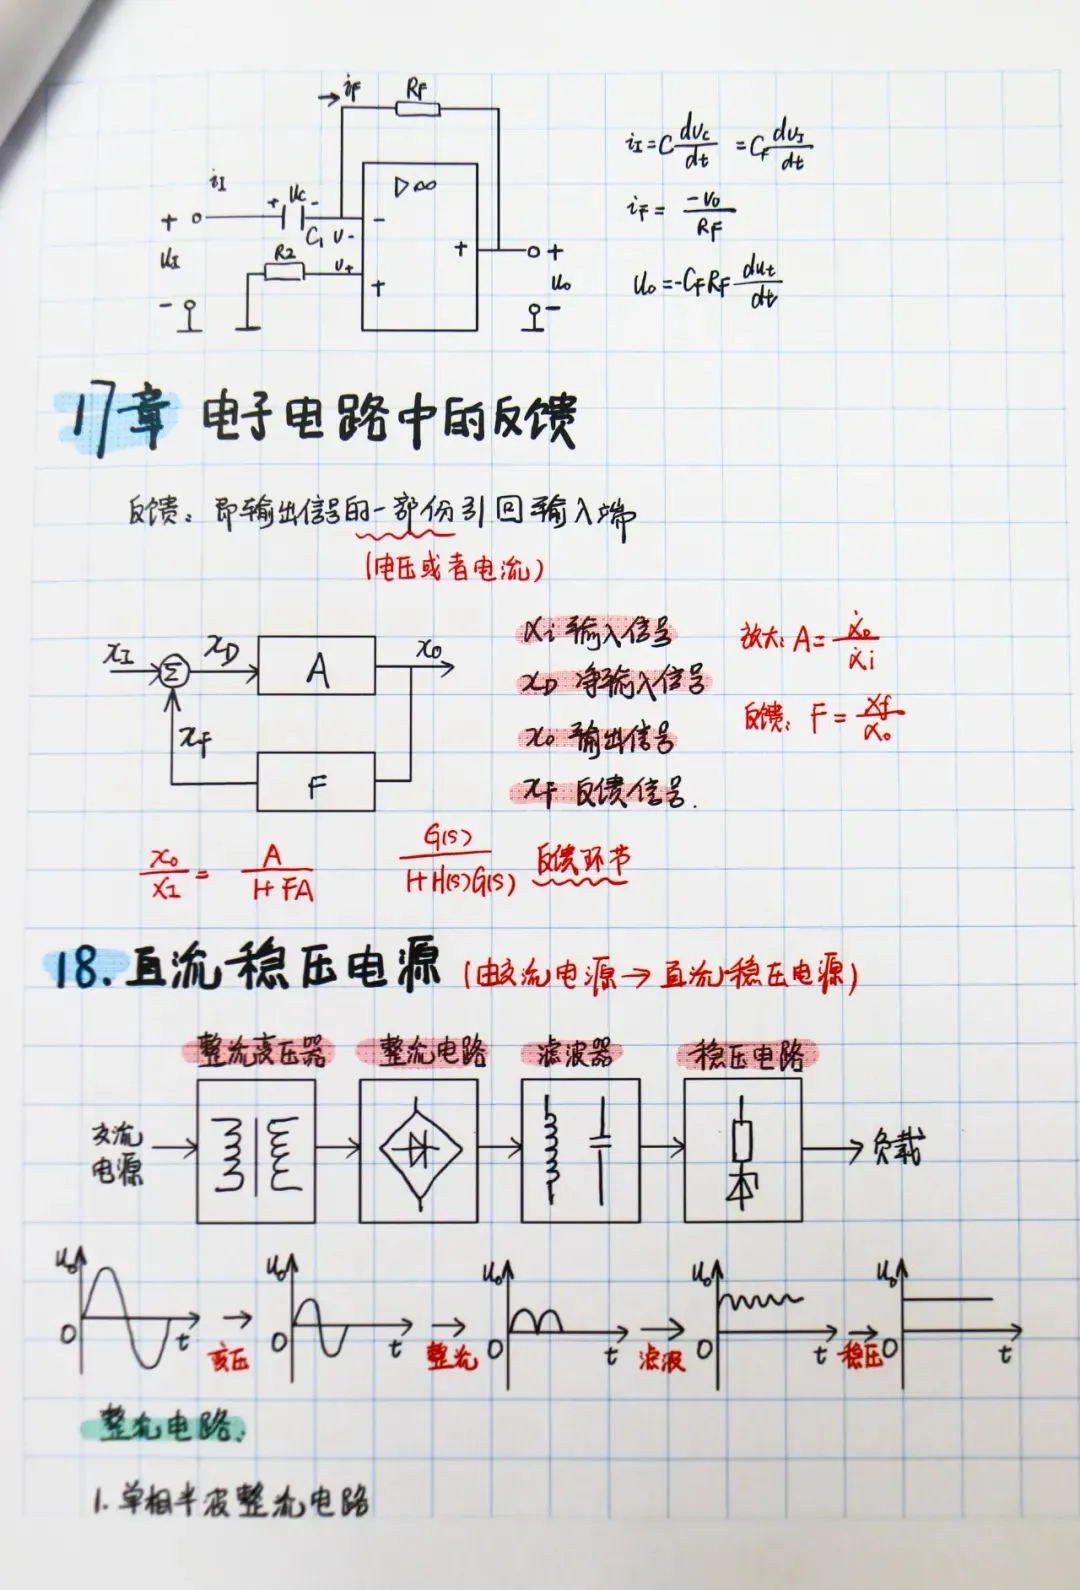 iF RF
iI
+ uC -
+
C1 u-
uI
R2 u+
-
▷∞
-
+
+
+
uo
-
iI=C duC/dt =CF duI/dt
iF= -uo/RF
uo=-CFRF dut/dt
17章 电子电路中的反馈
反馈: 即输出信号的一部份引回输入端
(电压或者电流)
xI Σ xD A xo
xF F
xi 输入信号
xD 净输入信号
xo 输出信号
xF 反馈信号.
放大: A= ẋo/ẋi
反馈: F= xf/xo
xo/xI = A/1+FA
G(s)/1+H(s)G(s) 反馈环节
18. 直流稳压电源 (由交流电源→直流稳压电源)
整流变压器 整流电路 滤波器 稳压电路
交流
电源
负载
uo O t 变压
uo O t 整流
uo O t 滤波
uo O t 稳压
uo O t
整流电路.
1. 单相半波整流电路